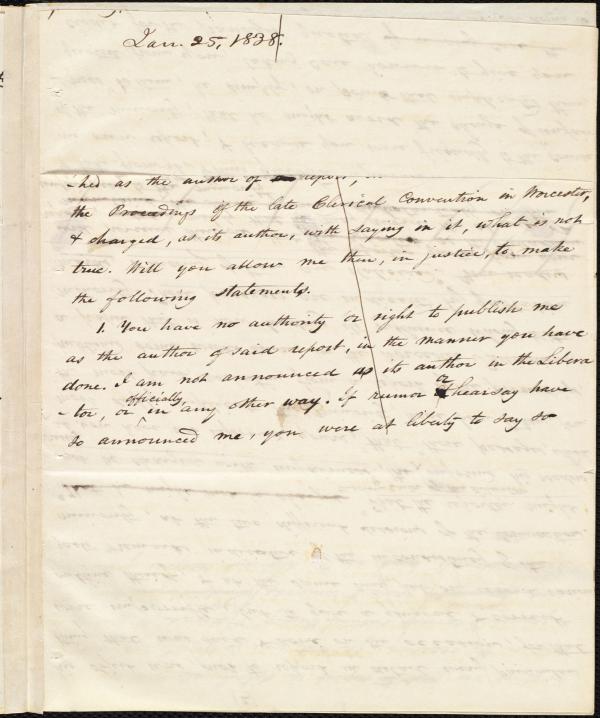 Jan. 25, 1838.
-hed as the author of report,
the Proceedings of the late Clerical Convention in Worcester,
& charged, as its author, with saying in it, what is not
true. Will you allow me then, in justice, to make
the following statements.
1. You have no authority or right to publish me
as the author of said report, in the manner you have
done. I am not announced as its author in the Libera
-tor, or officially, in any other way. If rumor or hearsay have
so announced me, you were at liberty to say so